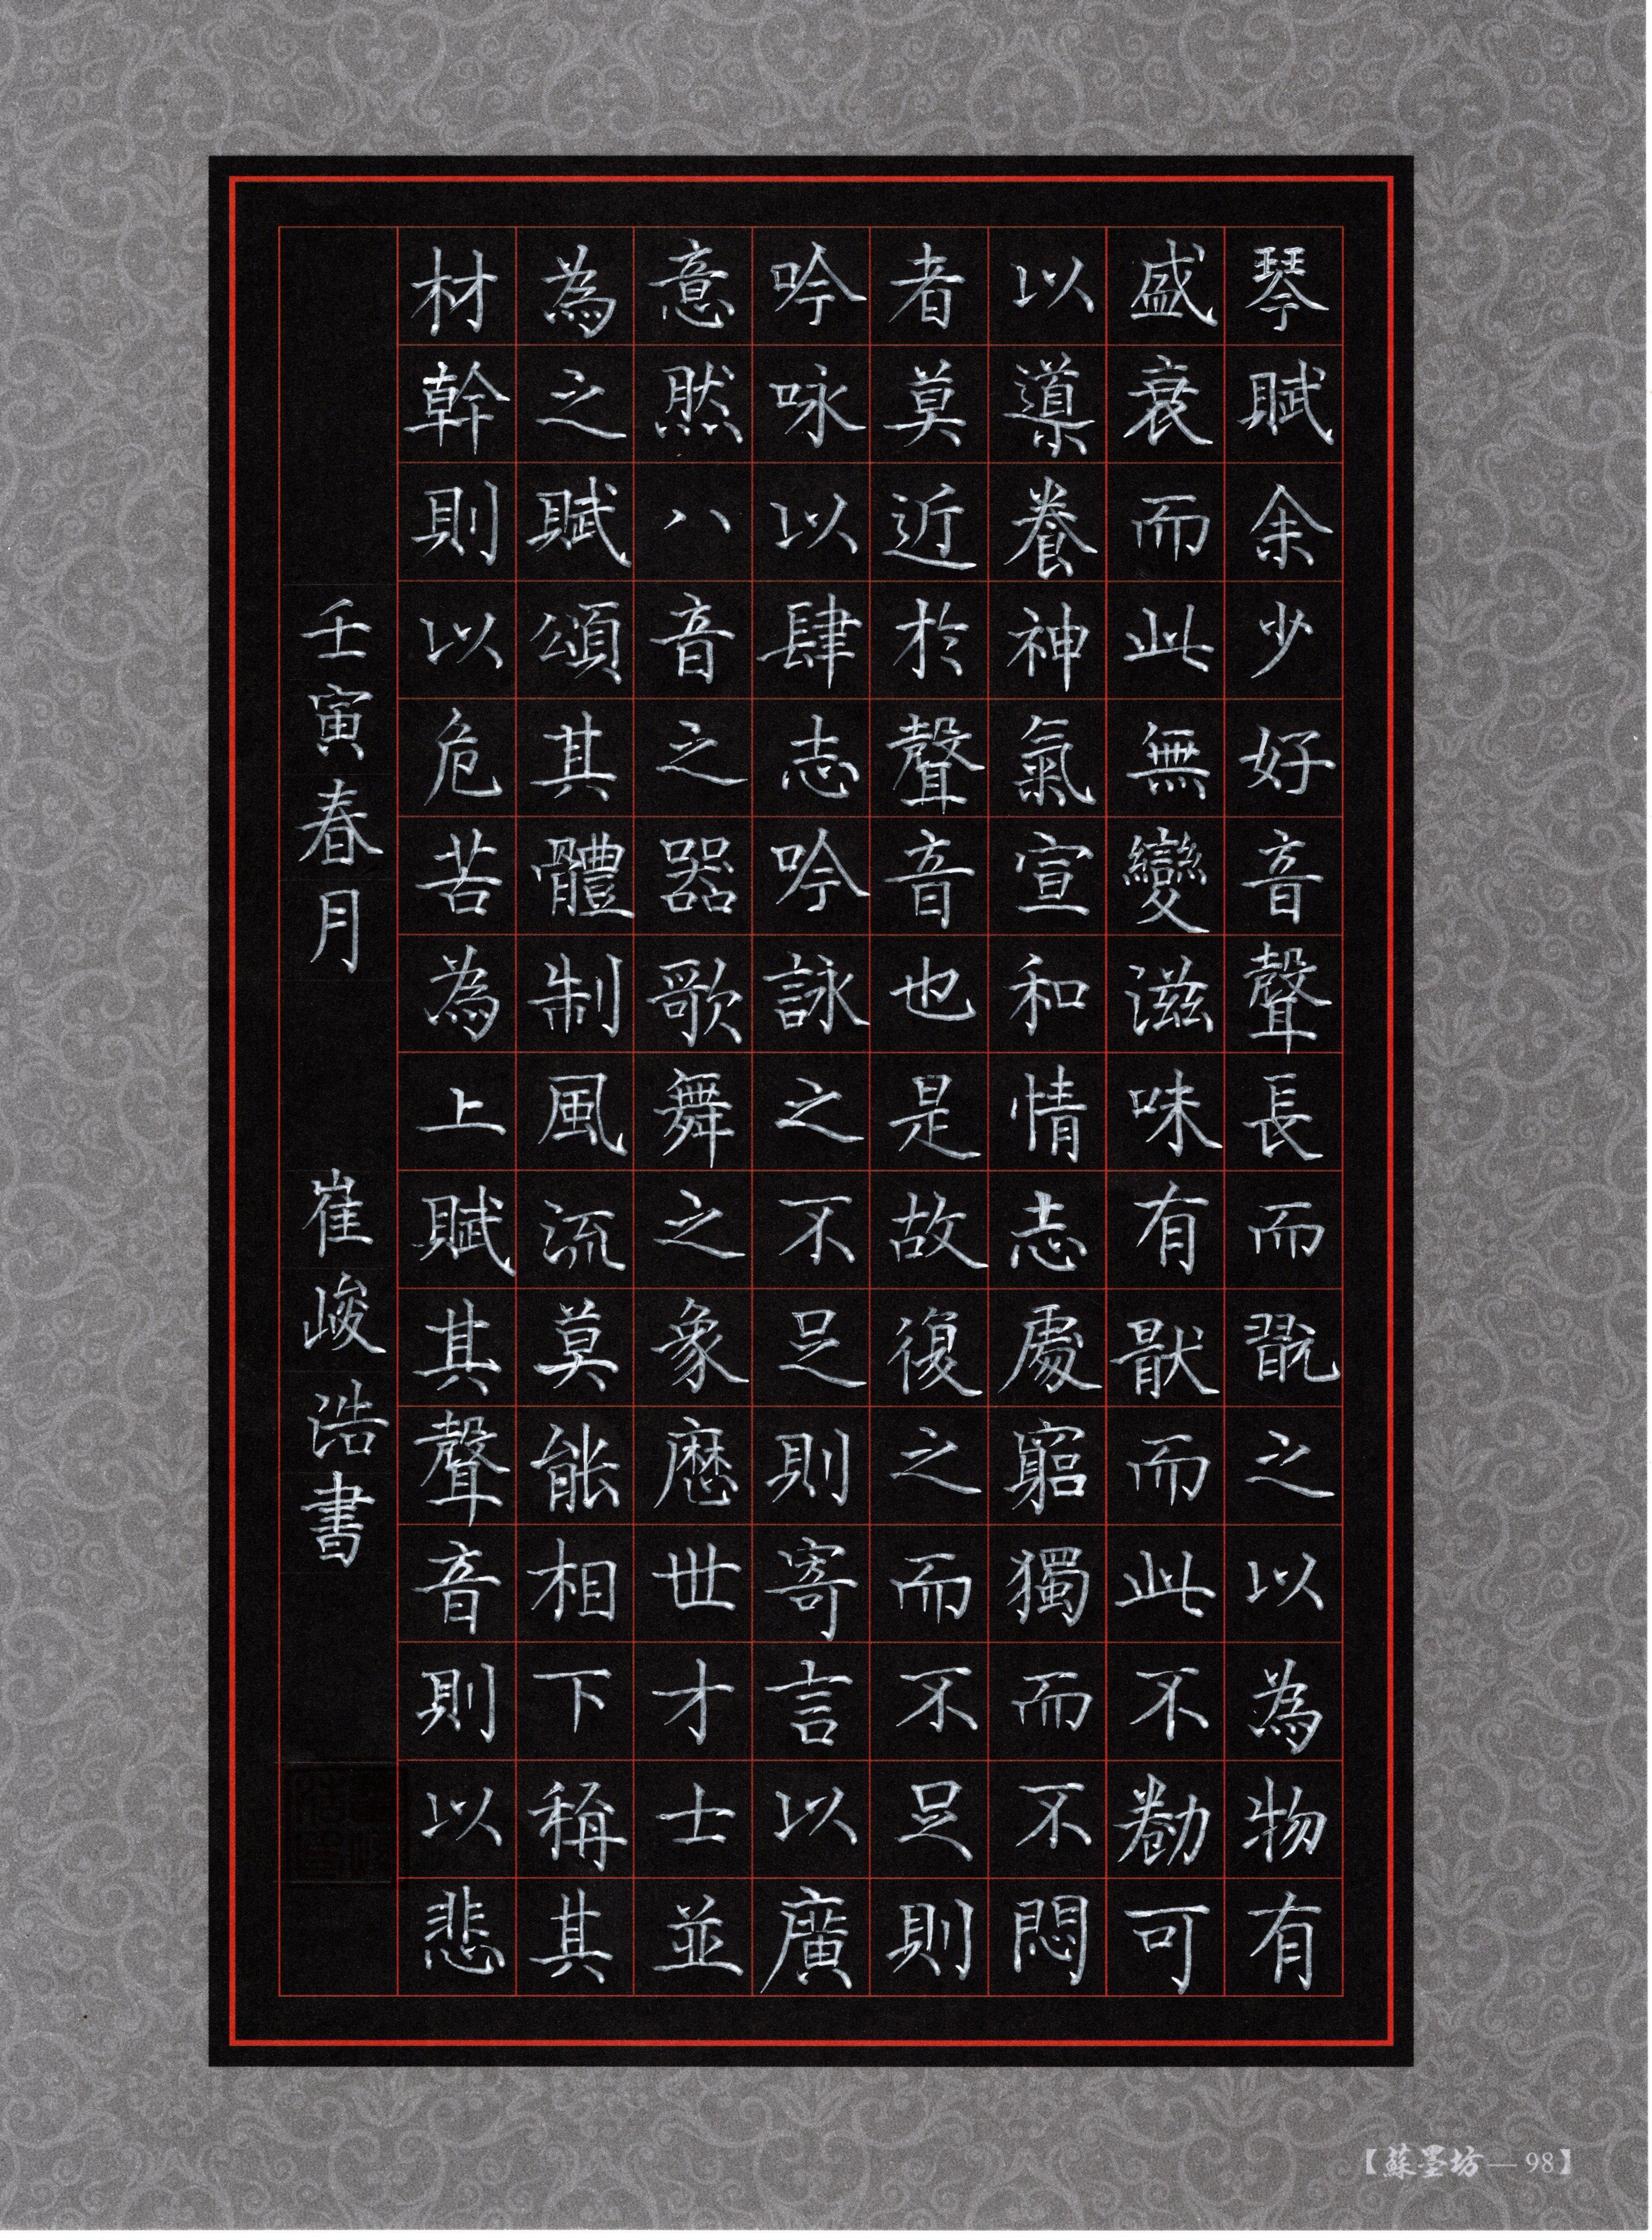 琴賦余少好音聲長而翫之以為物有
盛衰而此無變滋味有猒而此不勌可
以導養神氣宣和情志處窮獨而不悶
者莫近於聲音也是故復之而不足則
吟咏以肆志吟詠之不足則寄言以廣
意然八音之器歌舞之象歷世才士並
為之賦頌其體制風流莫能相下稱其
材幹則以危苦為上賦其聲音則以悲
壬寅春月 崔峻浩書
【蘇墨坊—98】